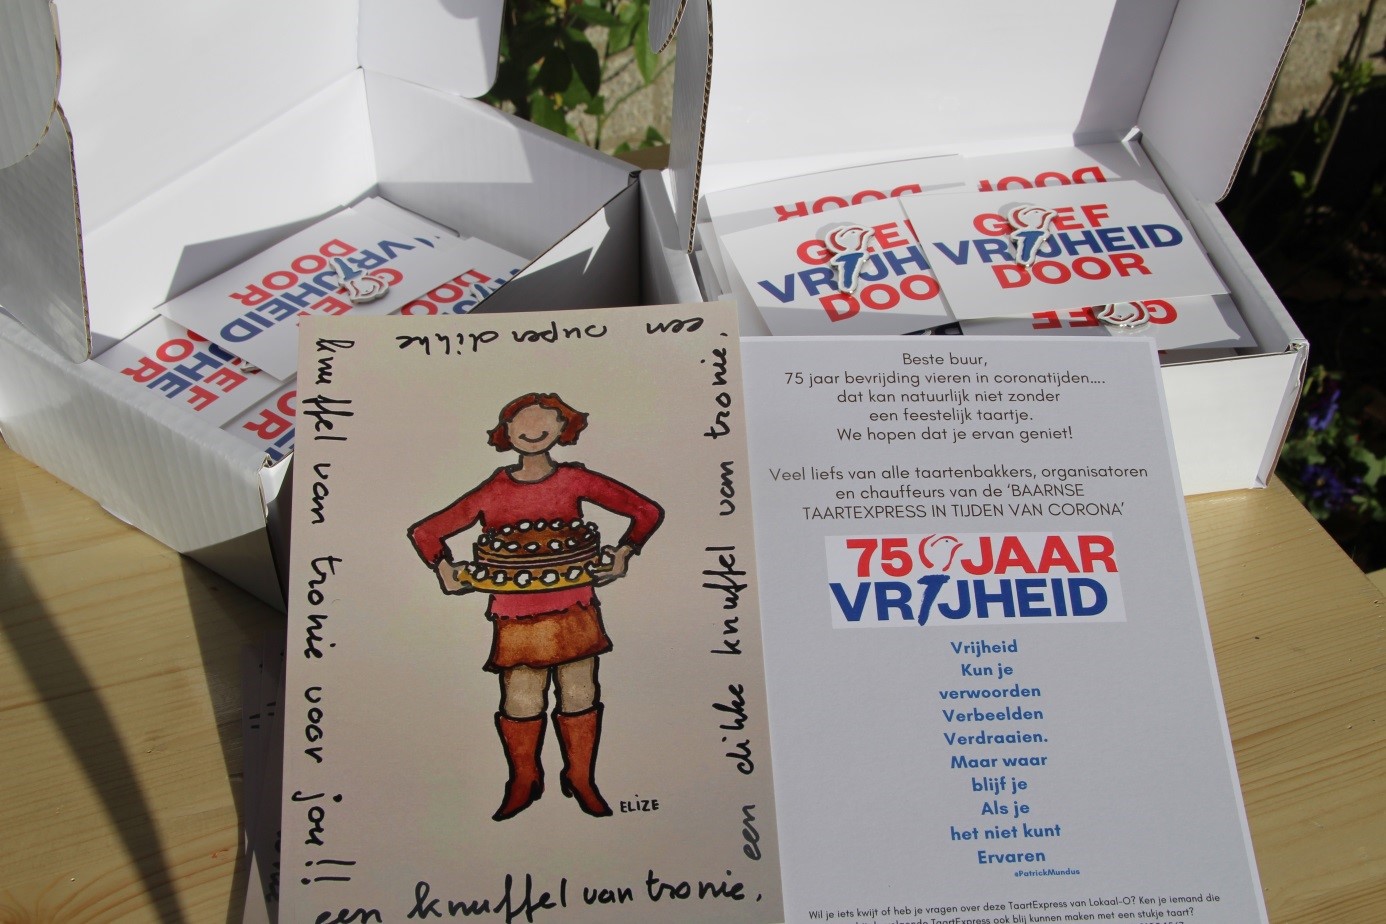 GEEF
VRIJHEID
DOOR
GEEF
VRIJH
DOO
DOOR
DOOR
GEEF
GEEF
VRIJHEID
DOOR
een superdikke
knuffel van tronie voor jou!!
een dikke knuffel van tronie.
een knuffel van tronie.
ELIZE
Beste buur,
75 jaar bevrijding vieren in coronatijden....
dat kan natuurlijk niet zonder
een feestelijk taartje.
We hopen dat je ervan geniet!
Veel liefs van alle taartenbakkers, organisatoren
en chauffeurs van de ‘BAARNSE
TAARTEXPRESS IN TIJDEN VAN CORONA’
75 JAAR
VRIJHEID
Vrijheid
Kun je
verwoorden
Verbeelden
Verdraaien.
Maar waar
blijf je
Als je
het niet kunt
Ervaren
©PatrickMundus
Wil je iets kwijt of heb je vragen over deze TaartExpress van Lokaal-O? Ken je iemand die
TaartExpress ook blij kunnen maken met een stukje taart?